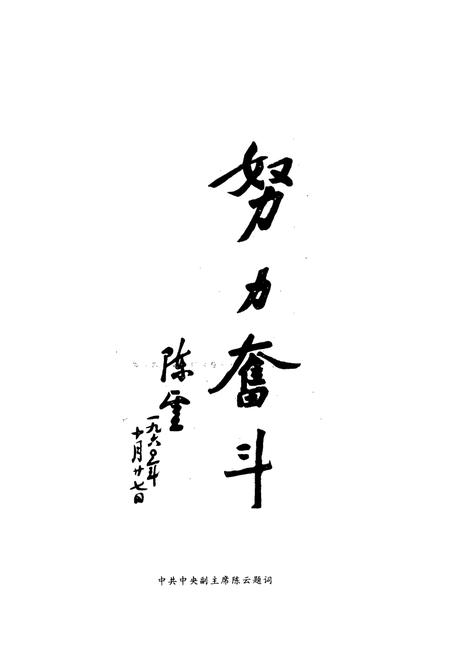 努力奋斗
陈雲
一九六五年
十月廿七日
中共中央副主席陈云题词